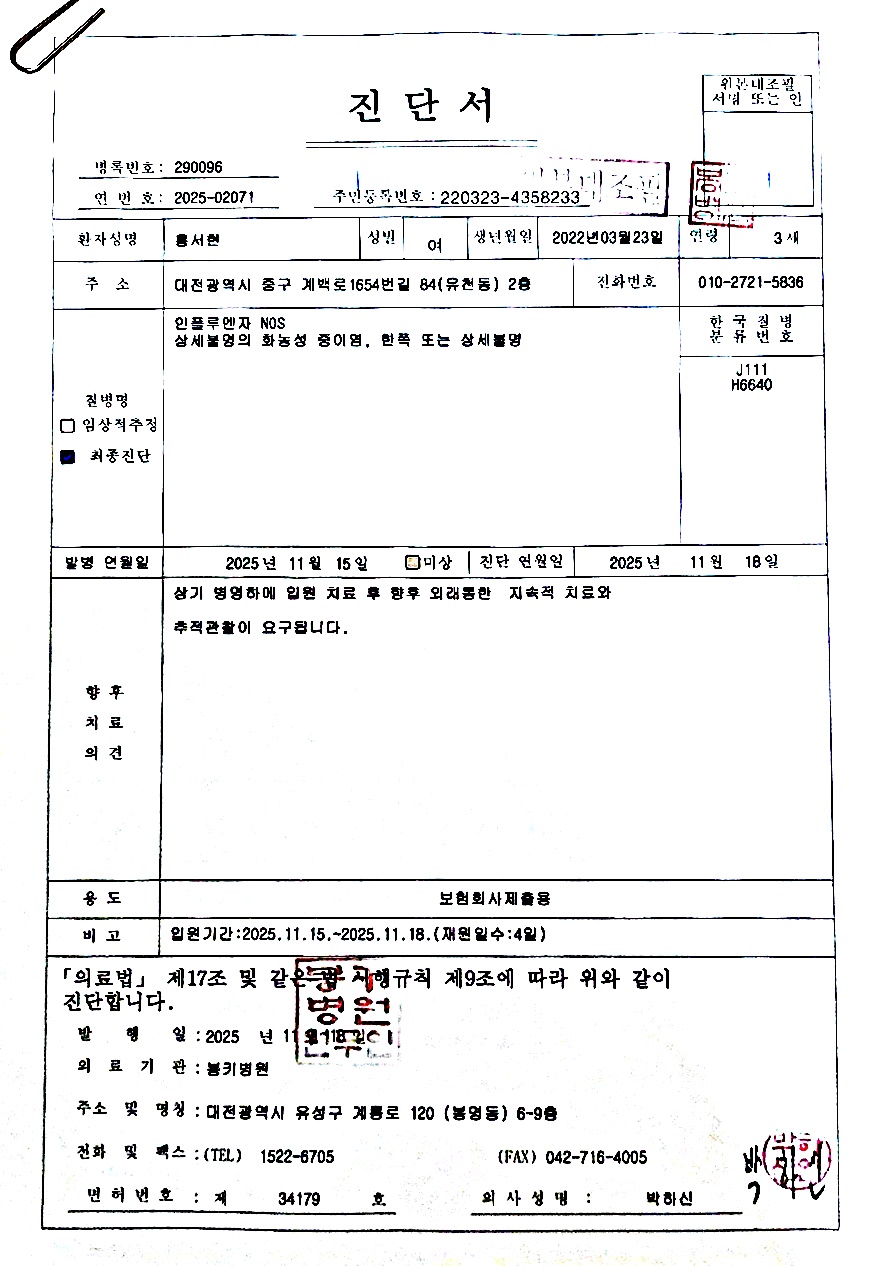 진 단 서
원본대조필
서명 또는 인
병록번호: 290096
연 번 호: 2025-02071
주민등록번호 : 220323-4358233
원본대조필
환자성명 홍서현 성별 여 생년월일 2022년03월23일 연령 3 세
주 소 대전광역시 중구 계백로1654번길 84(유천동) 2층 전화번호 010-2721-5836
인플루엔자 NOS
상세불명의 화농성 중이염, 한쪽 또는 상세불명
한 국 질 병
분 류 번 호
J111
H6640
질병명
임상적추정
최종진단
발병 연월일 2025년 11월 15일 미상 진단 연월일 2025년 11월 18일
상기 병명하에 입원 치료 후 향후 외래통한 지속적 치료와
추적관찰이 요구됩니다.
향 후
치 료
의 견
용 도 보험회사제출용
비 고 입원기간:2025.11.15.~2025.11.18.(재원일수:4일)
「의료법」 제17조 및 같은 법 시행규칙 제9조에 따라 위와 같이
진단합니다.
발 행 일 : 2025 년 11월 18일
의 료 기 관 : 봉키병원
주소 및 명칭 : 대전광역시 유성구 계룡로 120 (봉명동) 6-9층
전화 및 팩스 : (TEL) 1522-6705 (FAX) 042-716-4005
면 허 번 호 : 제 34179 호 의 사 성 명 : 박하신